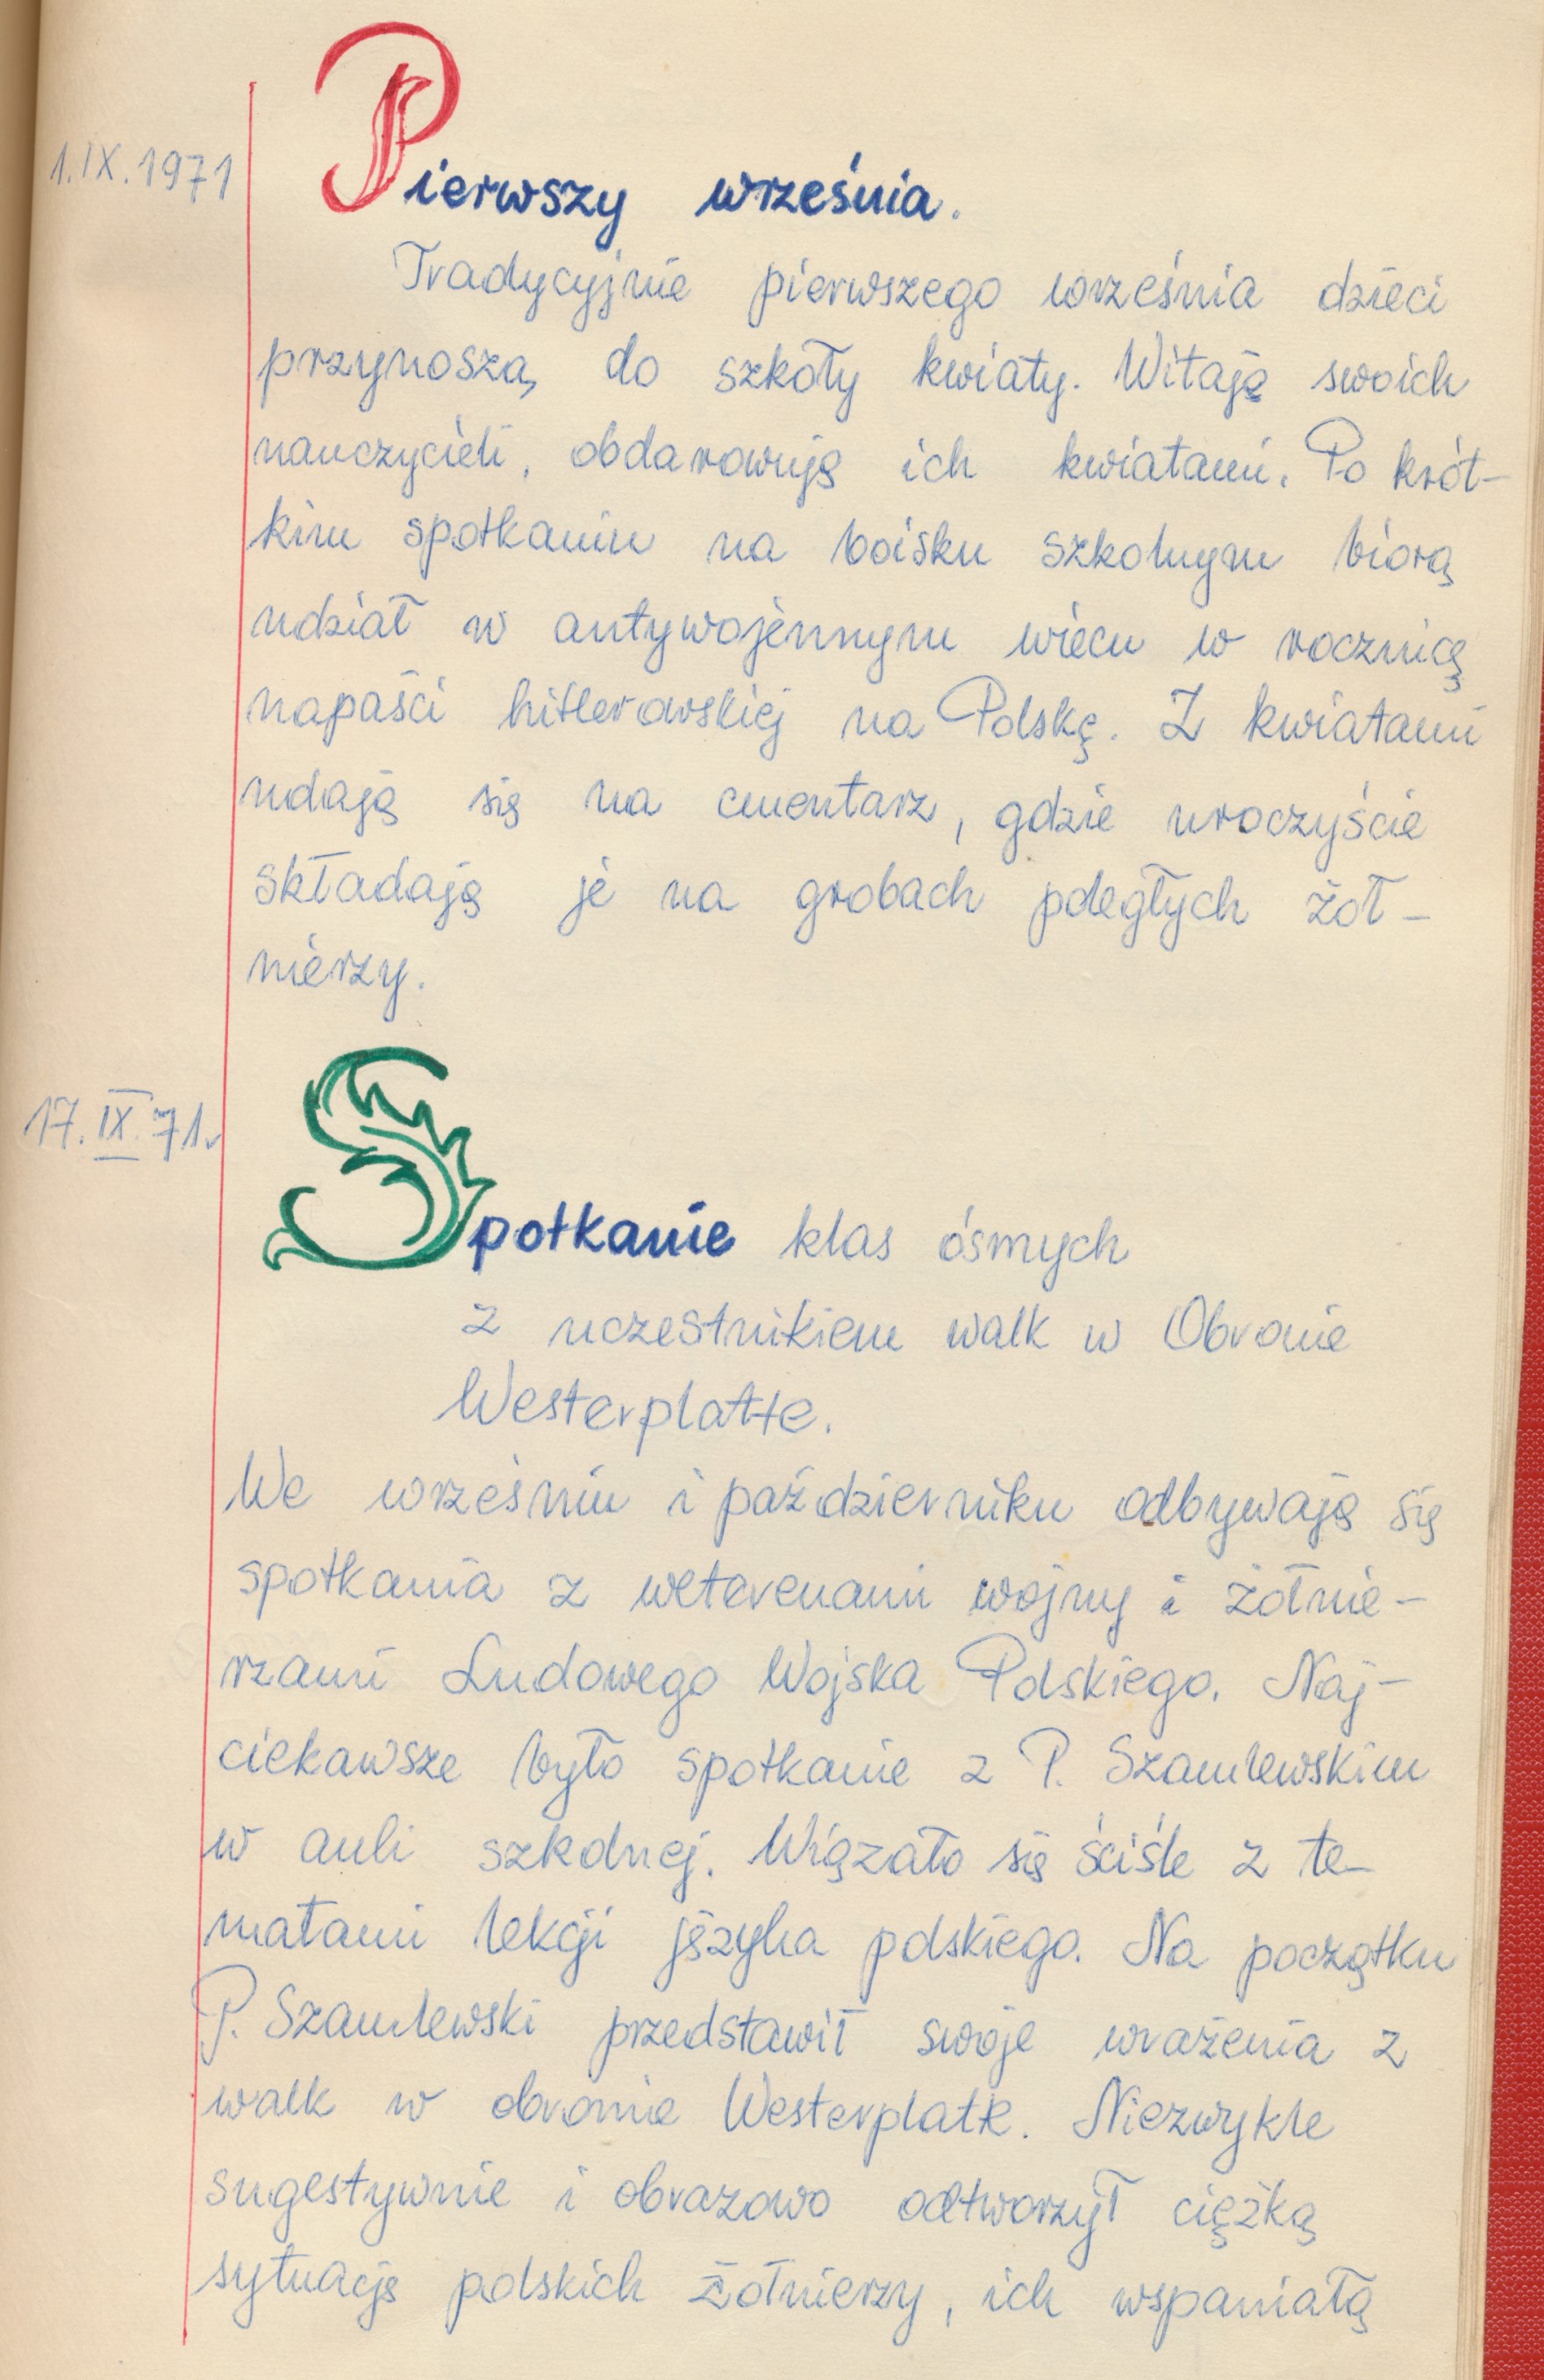 1.IX.1971
Pierwszy września.
Tradycyjnie pierwszego września dzieci
przynoszą do szkoły kwiaty. Witają swoich
nauczycieli, obdarowują ich kwiatami. Po krót-
kim spotkaniu na boisku szkolnym biorą
udział w antywojennym wiecu w rocznicę
napaści hitlerowskiej na Polskę. Z kwiatami
udają się na cmentarz, gdzie uroczyście
składają je na grobach poległych żoł-
nierzy.
17.IX.71r
Spotkanie klas ósmych
z uczestnikiem walk w Obronie
Westerplatte.
We wrześniu i październiku odbywają się
spotkania z weterenami wojny i żołnie-
rzami Ludowego Wojska Polskiego. Naj-
ciekawsze było spotkanie z P. Szamlewskim
w auli szkolnej. Wiązało się ściśle z te-
matami lekcji języka polskiego. Na początku
P. Szamlewski przedstawił swoje wrażenia z
walk w obronie Westerplatte. Niezwykle
sugestywnie i obrazowo odtworzył ciężką
sytuację polskich żołnierzy, ich wspaniałą